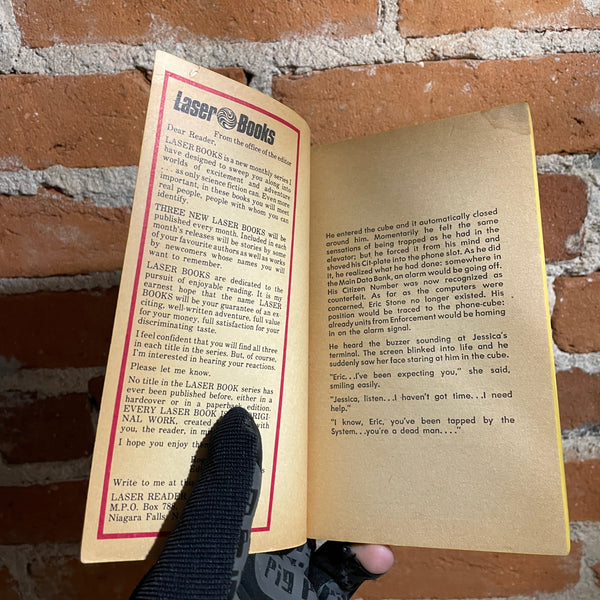 Laser Books
From the office of the editor
Dear Reader,
LASER BOOKS is a new monthly series I
have designed to sweep you along into
worlds of excitement and adventure
. . . as only science fiction can. Even more
important, in these books you will meet
real people, people with whom you can
identify.
THREE NEW LASER BOOKS will be
published every month. Included in each
month's releases will be stories by some
of your favourite authors as well as works
by newcomers whose names you will
want to remember.
LASER BOOKS are dedicated to the
pursuit of enjoyable reading. It is my
earnest hope that the name LASER
BOOKS will be your guarantee of an ex-
citing, well-written adventure, full value
for your money, full satisfaction for your
discriminating taste.
I feel confident that you will find all three
in each title in the series. But, of course,
I'm interested in hearing your reactions.
Please let me know.
No title in the LASER BOOK series has
ever been published before, either in a
hardcover or in a paperback edition.
EVERY LASER BOOK IS
NAL WORK, created with
you, the reader, in
I hope you enjoy
Write to me at
LASER READER
M.P.O. Box 788,
Niagara Falls,
He entered the cube and it automatically closed
around him. Momentarily he felt the same
sensations of being trapped as he had in the
elevator; but he forced it from his mind and
shoved his Cit-plate into the phone slot. As he did
it, he realized what he had done: somewhere in
the Main Data Bank, an alarm would be going off.
His Citizen Number was now recognized as
counterfeit. As far as the computers were
concerned, Eric Stone no longer existed. His
position would be traced to the phone-cube:
already units from Enforcement would be homing
in on the alarm signal.
He heard the buzzer sounding at Jessica's
terminal. The screen blinked into life and he
suddenly saw her face staring at him in the cube.
"Eric...I've been expecting you," she said,
smiling easily.
"Jessica, listen...I haven't got time...I need
help."
"I know, Eric, you've been tapped by the
System...you're a dead man...."
Pig